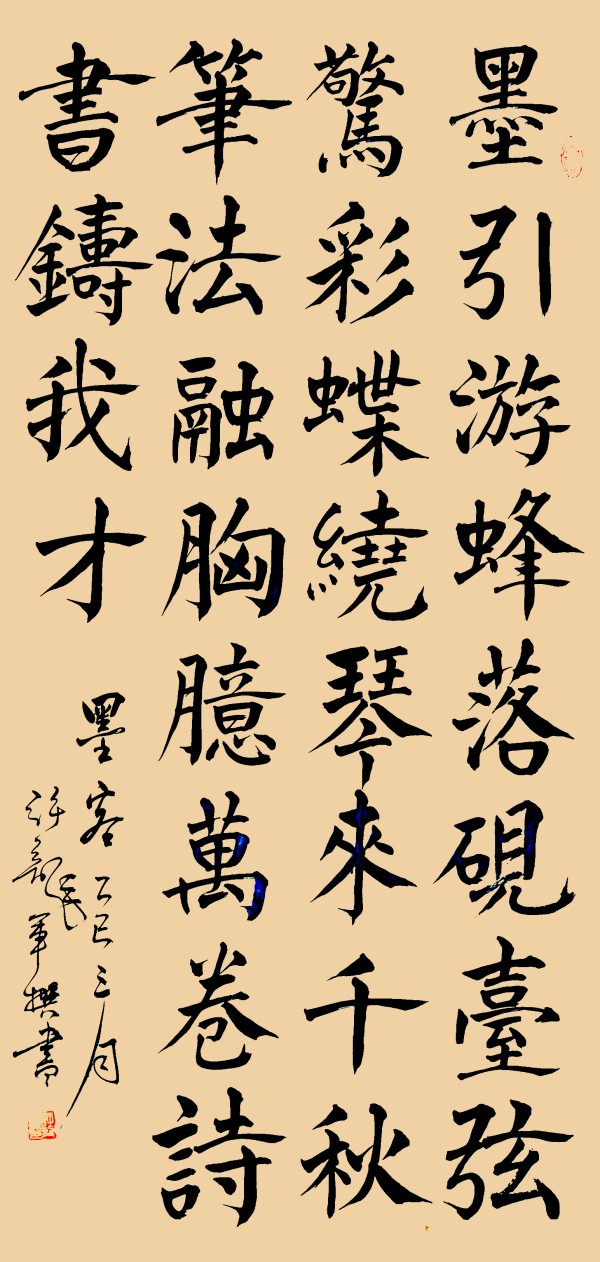 墨引游蜂落硯臺弦
驚彩蝶繞琴來千秋
筆法融胸臆萬卷詩
書鑄我才
墨客乙巳三月
許龍軍撰書